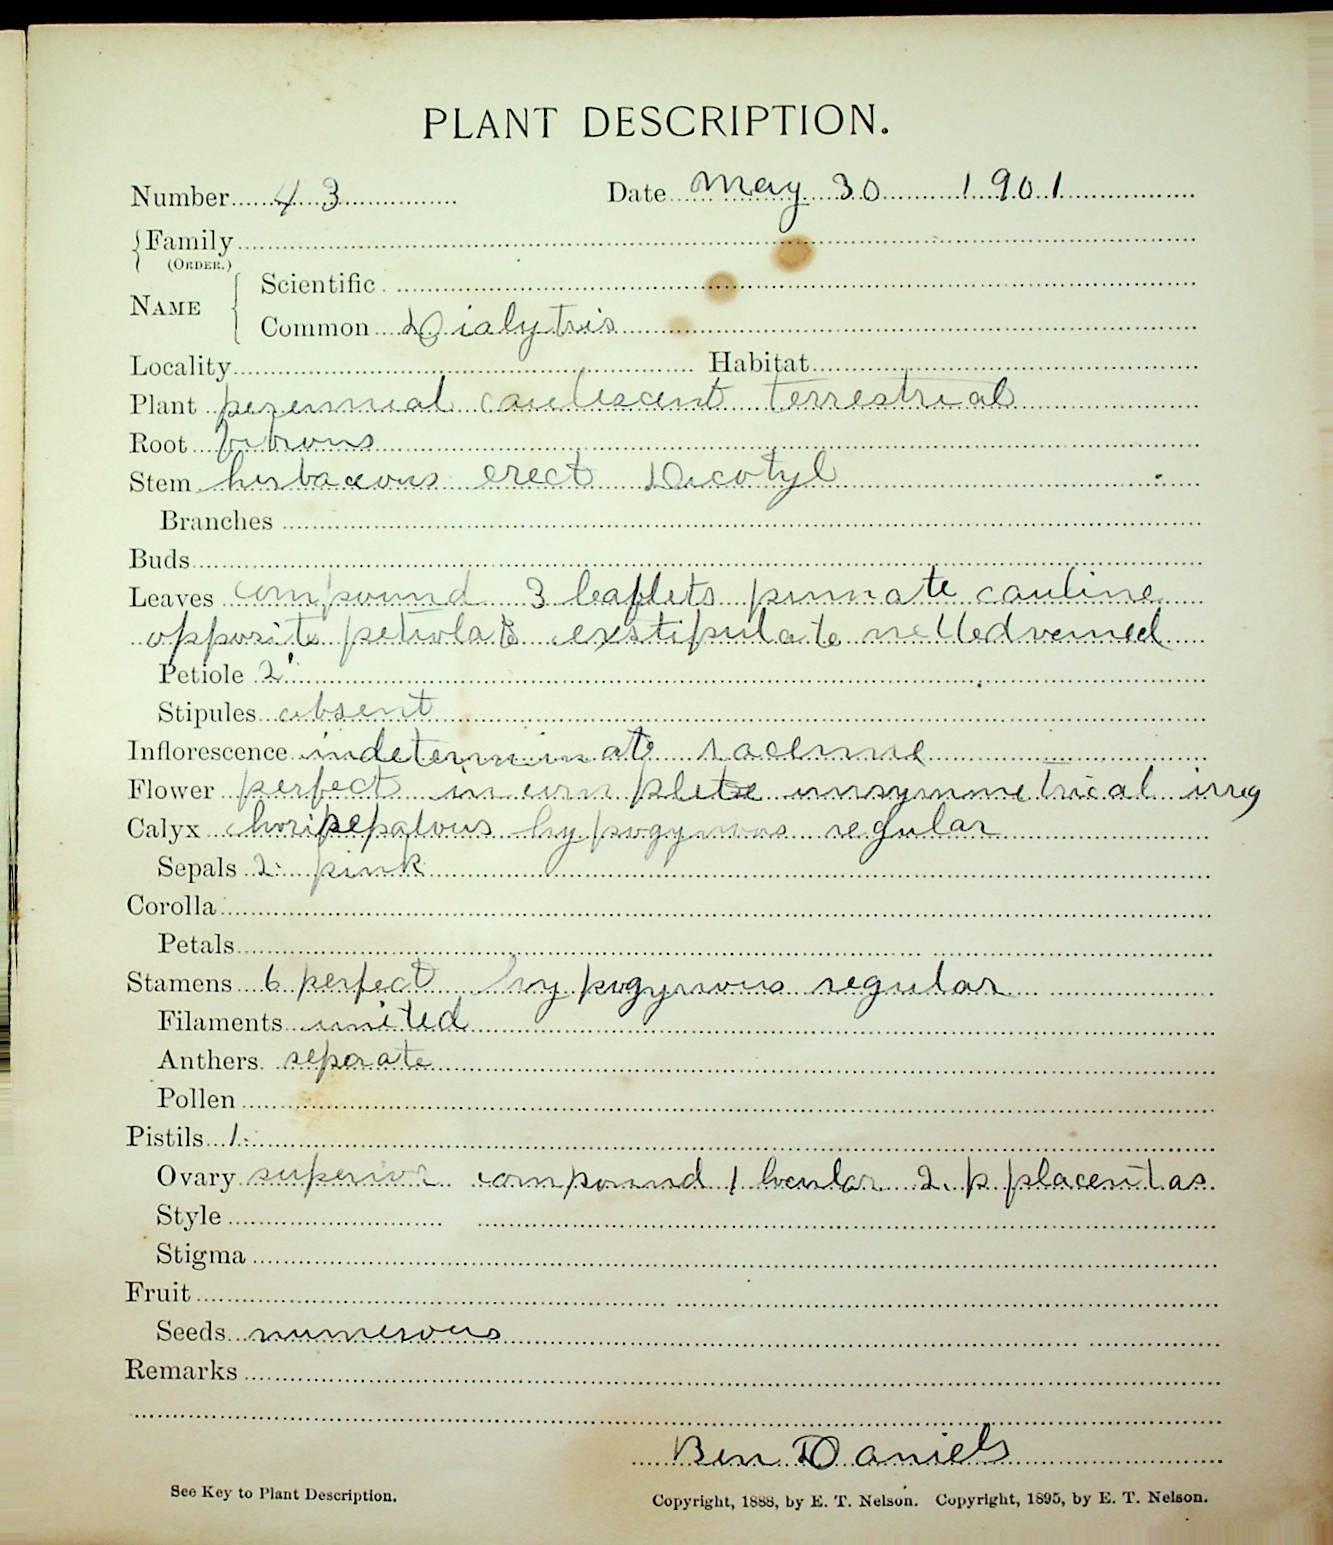 PLANT DESCRIPTION.
Number 43 Date May 30 1901
Family
(ORDER.)
Scientific
NAME
Common Dialytris
Locality Habitat
Plant perennial caulescent terrestrial
Root fibrous
Stem herbaceous erect Dicotyl
Branches
Buds
Leaves compound 3 leaflets pinnate cauline
opposite petiolate exstipulate nettedveined
Petiole 2'
Stipules absent
Inflorescence indeterminate raceme
Flower perfect incomplete unsymmetrical irreg
Calyx chorisepalous hypogynous regular
Sepals 2 pink
Corolla
Petals
Stamens 6 perfect hypogynous regular
Filaments united
Anthers separate
Pollen
Pistils 1
Ovary superior compound 1 locular 2 p placentas
Style
Stigma
Fruit
Seeds numerous
Remarks
Ben Daniels
See Key to Plant Description. Copyright, 1888, by E. T. Nelson. Copyright, 1895, by E. T. Nelson.